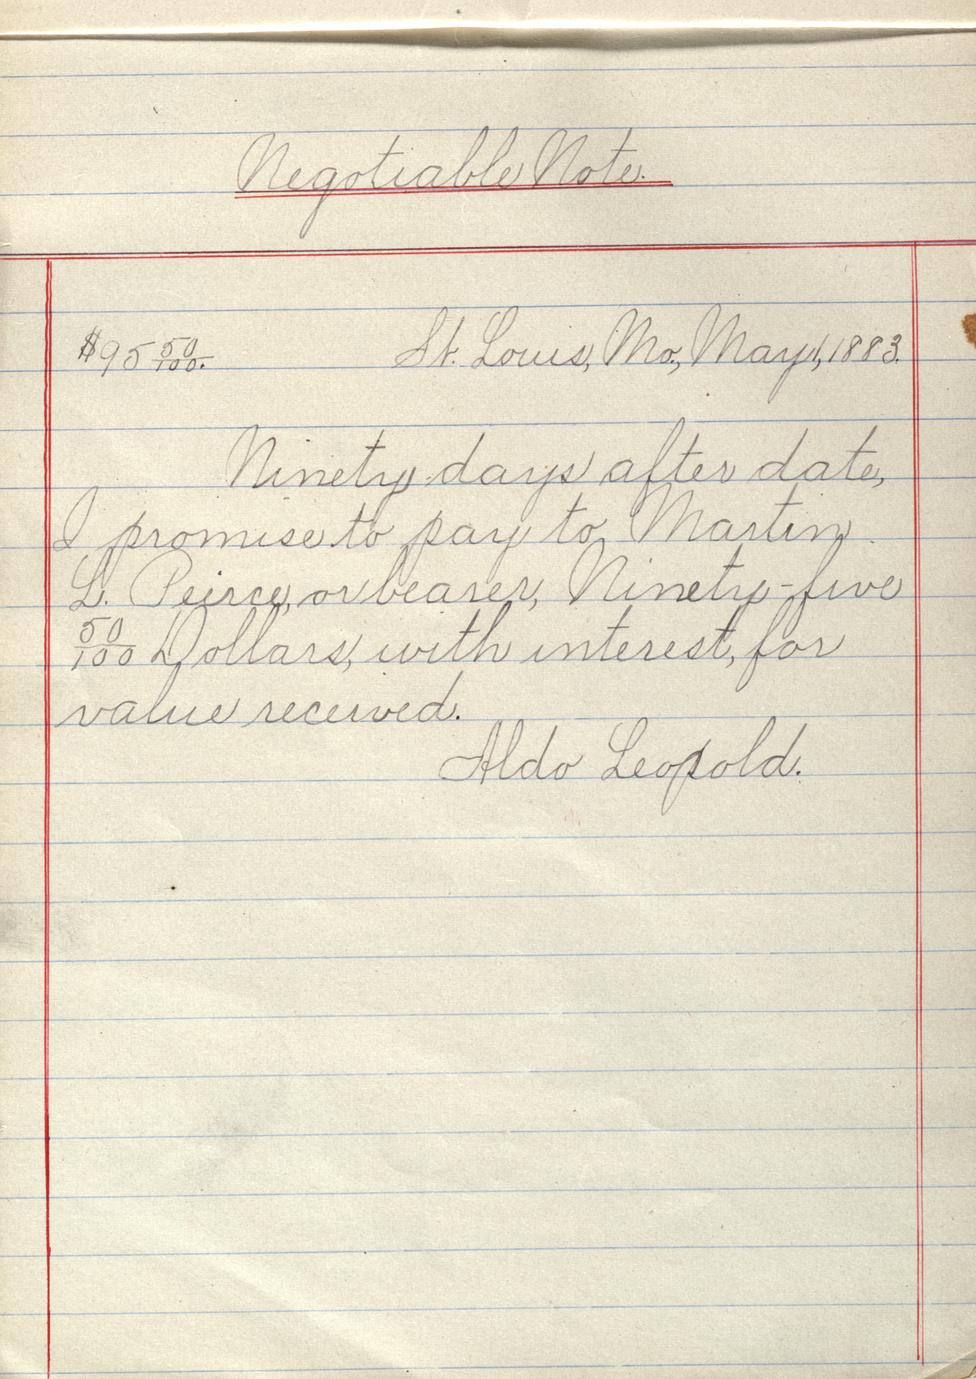 Negotiable Note.
$95 50/100. St. Louis, Mo., May 1, 1883.
Ninety days after date,
I promise to pay to Martin
L. Peirce, or bearer, Ninety-five
50/100 Dollars, with interest, for
value received.
Aldo Leopold.